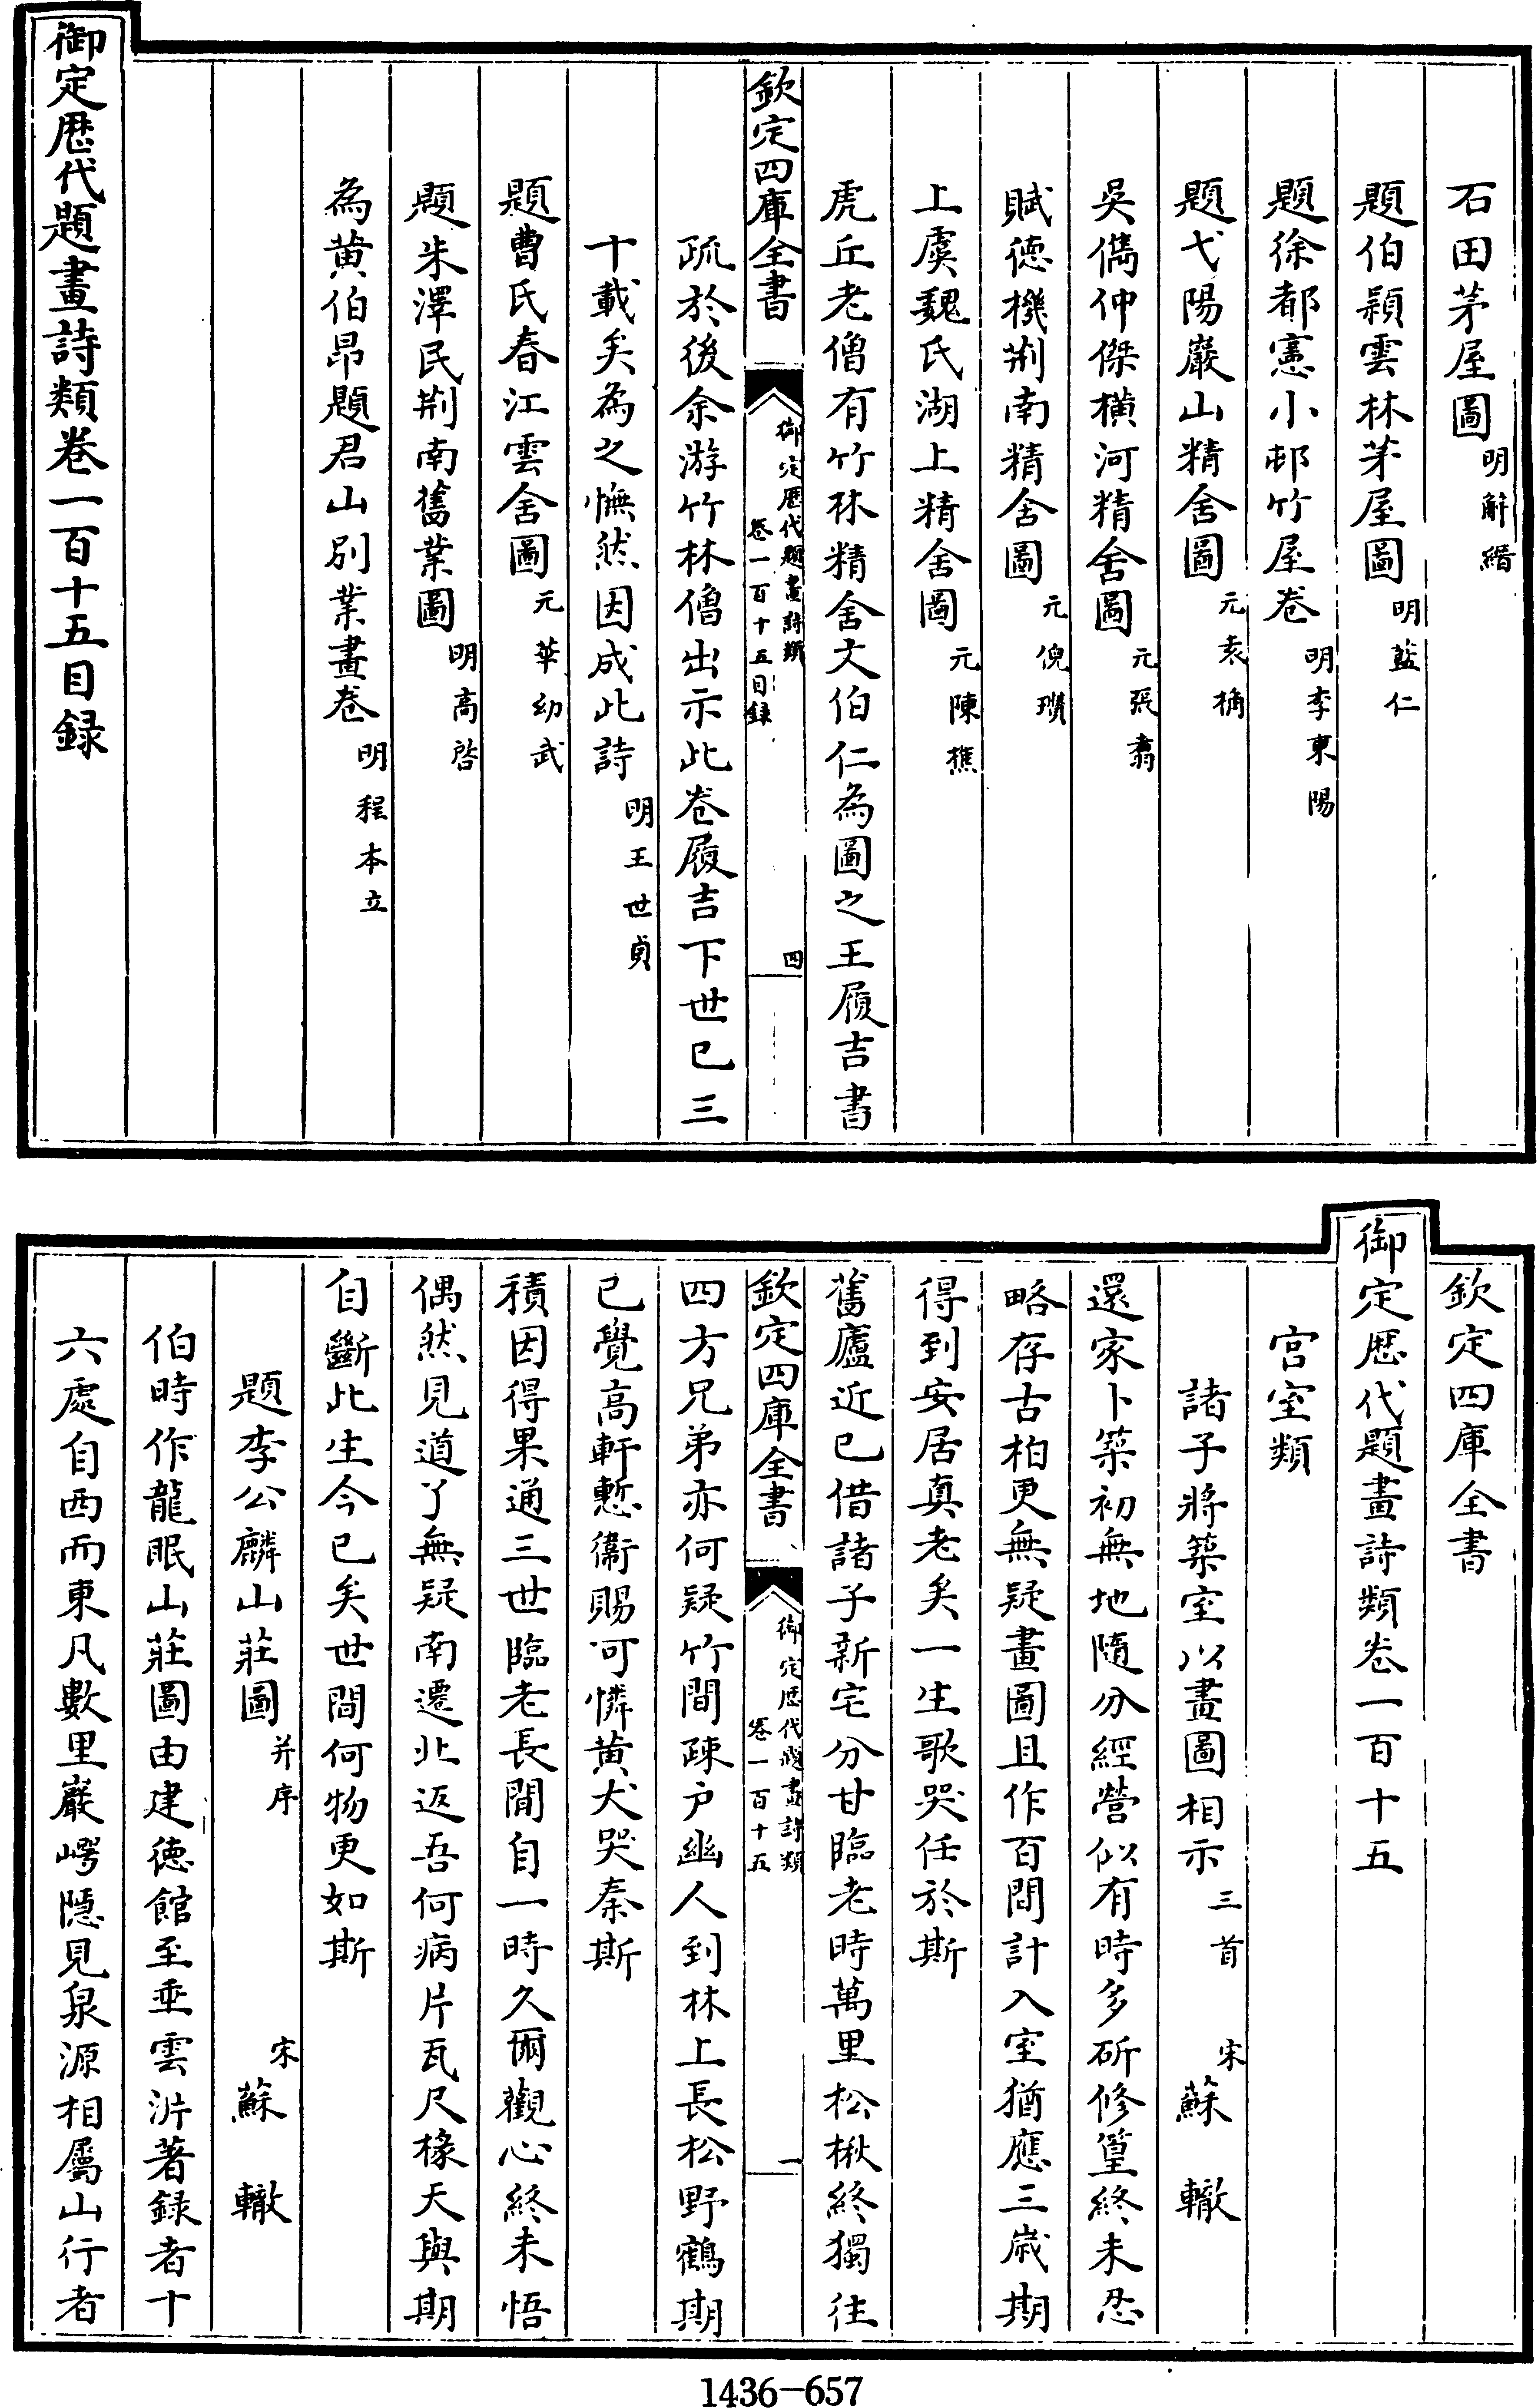 石田茅屋圖明解縉
題伯穎雲林茅屋圖明藍仁
題徐都憲小邨竹屋卷明李東陽
題弋陽巖山精舍圖元袁桷
吳儁仲傑横河精舍圖元張翥
賦徳機荆南精舍圖元倪瓚
上虞魏氏湖上精舍圖元陳樵
虎丘老僧有竹林精舍文伯仁為圖之王履吉書
欽定四庫全書
御定歴代題畫詩類
卷一百十五目録
四
疏於後余游竹林僧出示此卷履吉下世已三
十載矣為之憮然因成此詩明王世貞
題曹氏春江雲舍圖元華幼武
題朱澤民荆南舊業圖明高啓
為黄伯昂題君山别業畫卷明程本立
御定歴代題畫詩類卷一百十五目録
欽定四庫全書
御定歴代題畫詩類卷一百十五
宫室類
諸子將築室以畫圖相示三首 宋蘇轍
還家卜築初無地隨分經營似有時多斫修篁終未忍
略存古柏更無疑畫圖且作百間計入室猶應三歲期
得到安居真老矣一生歌哭任於斯
舊廬近已借諸子新宅分甘臨老時萬里松楸終獨往
欽定四庫全書
御定歴代題畫詩類
卷一百十五
一
四方兄弟亦何疑竹間疎户幽人到林上長松野鶴期
已覺高軒慙衞賜可憐黄犬哭秦斯
積因得果通三世臨老長閒自一時久爾觀心終未悟
偶然見道了無疑南遷北返吾何病片瓦尺椽天與期
自斷此生今已矣世間何物更如斯
題李公麟山莊圖并序 宋蘇轍
伯時作龍眠山莊圖由建徳館至垂雲沜著録者十
六處自西而東凡數里巖崿隱見泉源相屬山行者
1436-657